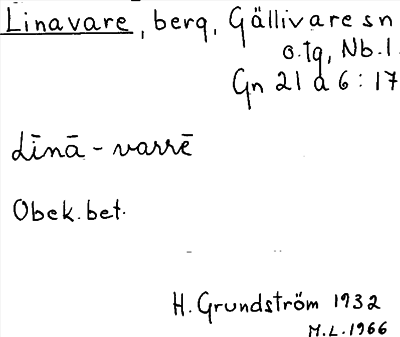 Linavare, berg, Gällivare sn
o.tg, Nb.l.
Gn 21 a 6:17
Līnā-varrē
Obek.bet.
H. Grundström 1932
M.L.1966